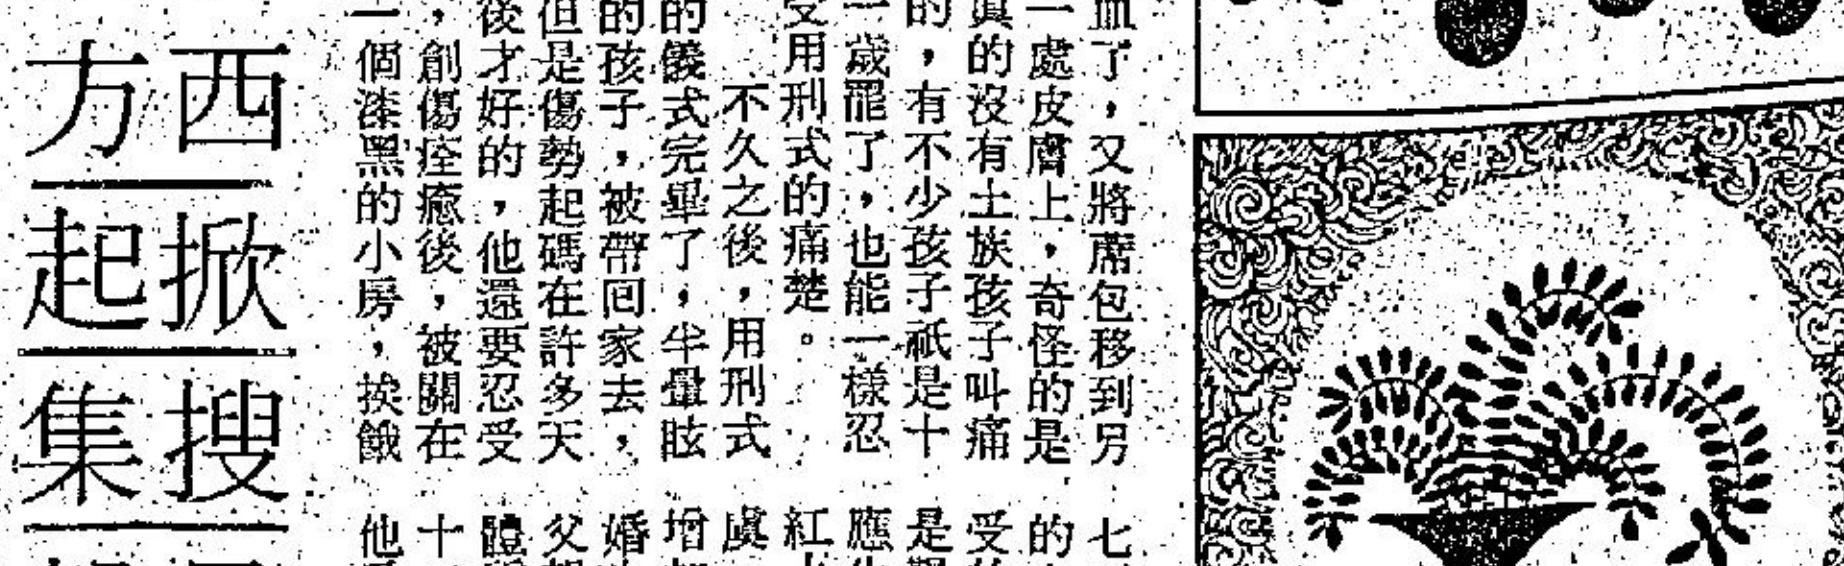 血了，又將蓆包移到另
一處皮膚上，奇怪的是
眞的沒有土族孩子叫痛
的，有不少孩子祇是十
一歲罷了，也能一樣忍
受用刑式的痛楚。
不久之後，用刑式
的儀式完畢了，半暈眩
的孩子，被帶回家去，
但是傷勢起碼在許多天
後才好的，他還要忍受
，創傷痊癒後，被關在
一個漆黑的小房，挨餓
七
的
受
是
應
紅
虞
增
婚
父
體
十
他
西方
掀起
搜集